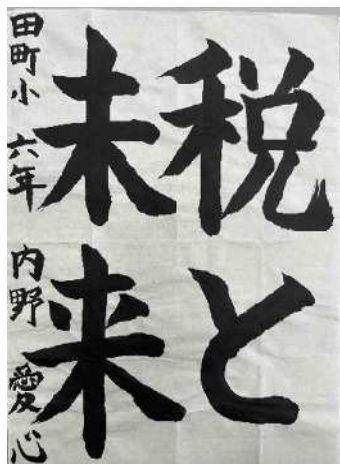 税と
未来
田町小 六年 内野 愛心